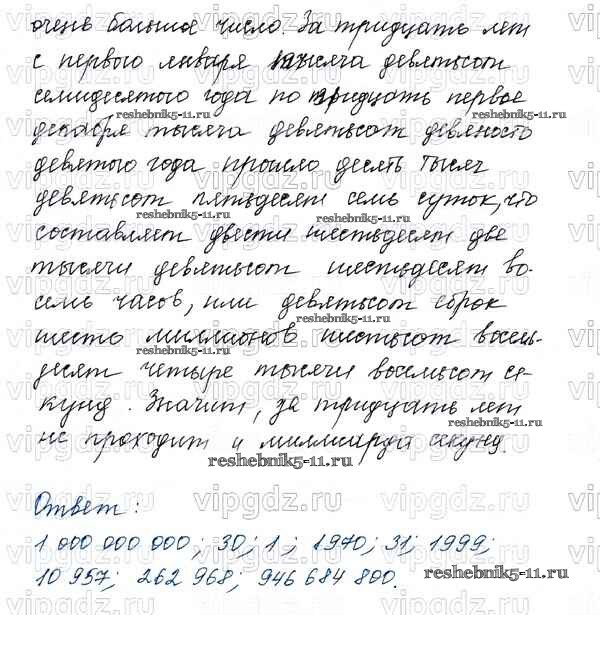 очень большое число. За тридцать лет
с первого января тысяча девятьсот
семидесятого года по тридцать первое
reshebnik5-11.ru
декабря тысяча девятьсот девяносто
девятого года прошло десять тысяч
девятьсот пятьдесят семь суток, что
reshebnik5-11.ru reshebnik5-11.ru
составляет двести шестьдесят две
тысячи девятьсот шестьдесят во-
семь часов, или девятьсот сорок
шесть миллионов шестьсот восемь-
reshebnik5-11.ru
десят четыре тысячи восемьсот се-
кунд. Значит, за тридцать лет
не проходит и миллиарда секунд.
reshebnik5-11.ru
Ответ:
1 000 000 000; 30; 1; 1970; 31; 1999;
10 957; 262 968; 946 684 800.
reshebnik5-11.ru
vipgdz.ru